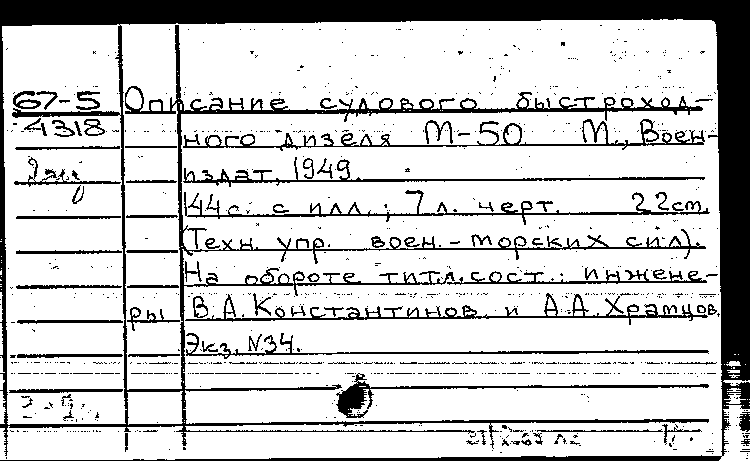 67-5 Описание судового быстроход-
4318 ного дизеля М-50 М., Воен-
издат, 1949.
144с. с илл.; 7л. черт. 22см.
(Техн. упр. воен.-морских сил).
На обороте титл.сост.: инжене-
ры В.А.Константинов и А.А.Храмцов.
Экз. N34.